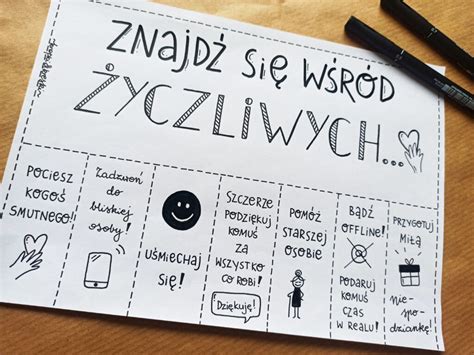 ZNAJDŹ SIĘ WŚRÓD
ŻYCZLIWYCH...
POCIESZ
KOGOŚ
SMUTNEGO!
Zadzwoń
do
bliskiej
osoby!
UŚMIECHAJ
SIĘ!
SZCZERZE
PODZIĘKUJ
KOMUŚ
ZA
WSZYSTKO
CO ROBI!
Dziękuję!
POMÓŻ
STARSZEJ
OSOBIE
BĄDŹ
OFFLINE!
PODARUJ
KOMUŚ
CZAS
W REALU!
PRZYGOTUJ
MIŁĄ
nie-
spo-
dziankę!